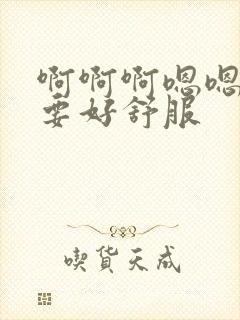 啊啊啊嗯嗯
要好舒服
喫貨天成